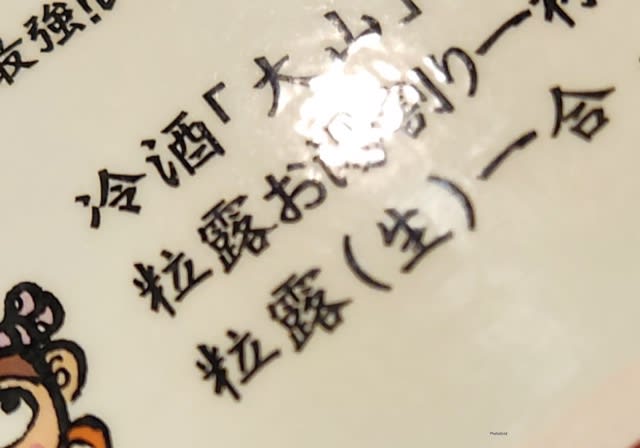 最強!!
冷酒「大山」
粒露お湯割り一杯
粒露(生)一合